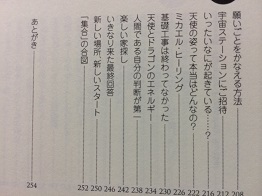 願いごとをかなえる方法 208
宇宙ステーションにご招待 212
いったいなにが起きている……? 216
天使の姿って本当はどんなの? 222
ミカエル・ヒーリング 226
基礎工事は終わってなかった 230
天使とドラゴンのエネルギー 234
人間である自分の判断が第一 238
楽しい家探し 242
いきなり来た最終回答 246
新しい場所、新しいスタート 250
「集合」の合図 252
あとがき 254